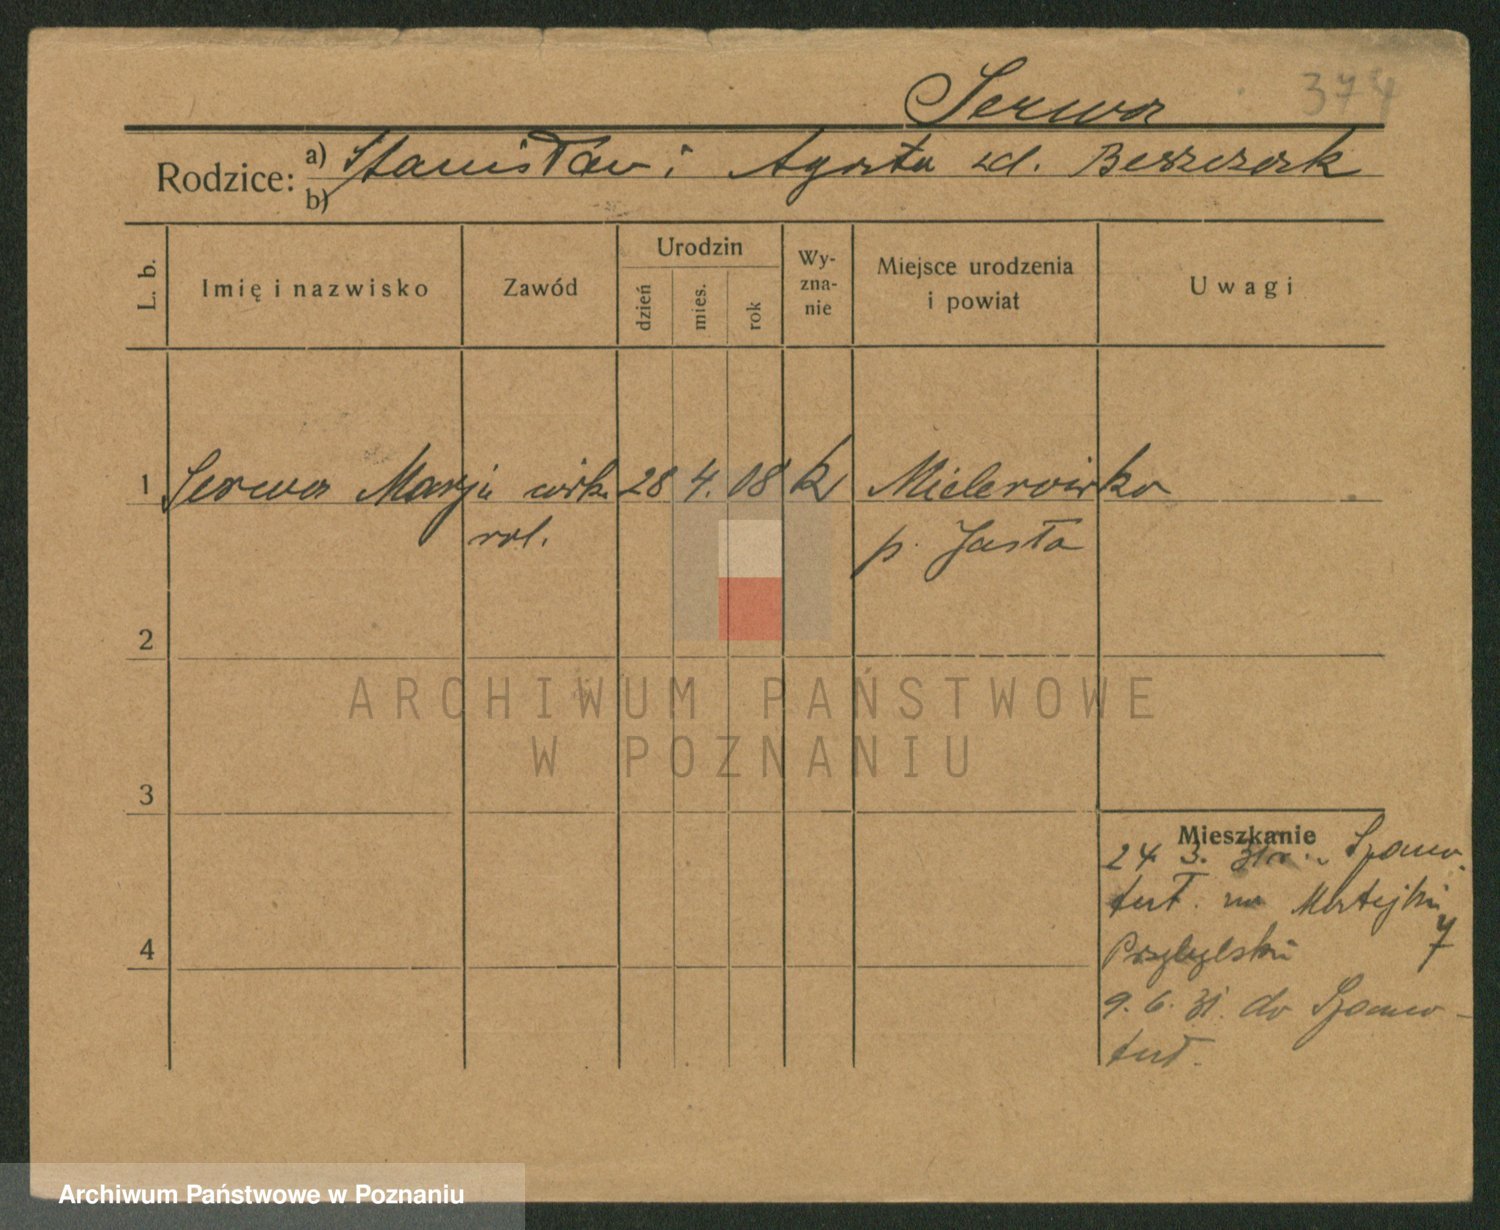 Serwa 374
Rodzice: a) Stanisław i Agata zd. Beszczak
b)
L. b. Imię i nazwisko Zawód Urodzin dzień mies. rok Wyznanie Miejsce urodzenia i powiat Uwagi
1 Serwa Marja 28 4. 08 k
rol. p. Jasła
2
3
Mieszkanie
24 3. 31 r. Szamo-
tuł. na 7
4 Przybylski
9. 6. 31. do Szamo-
tuł.
ARCHIWUM PAŃSTWOWE
W POZNANIU
Archiwum Państwowe w Poznaniu